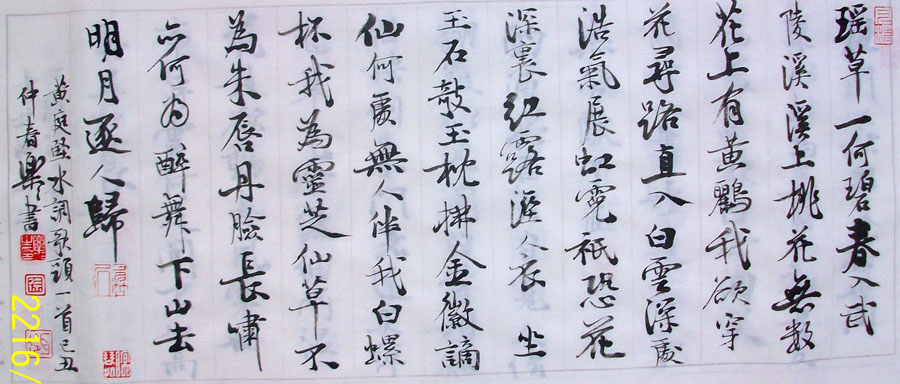 瑶草一何碧春入武
陵溪溪上桃花無数
花上有黄鸝我欲穿
花尋路直入白雲深處
浩氣展虹霓祇恐花
深裏红露溼人衣坐
玉石敲玉枕拂金徽謫
仙何處無人伴我白螺
杯我為靈芝仙草不
為朱唇丹臉長嘯
亦何为醉舞下山去
明月逐人歸
黄庭堅水調歌頭一首己丑
仲春樂書
2216/